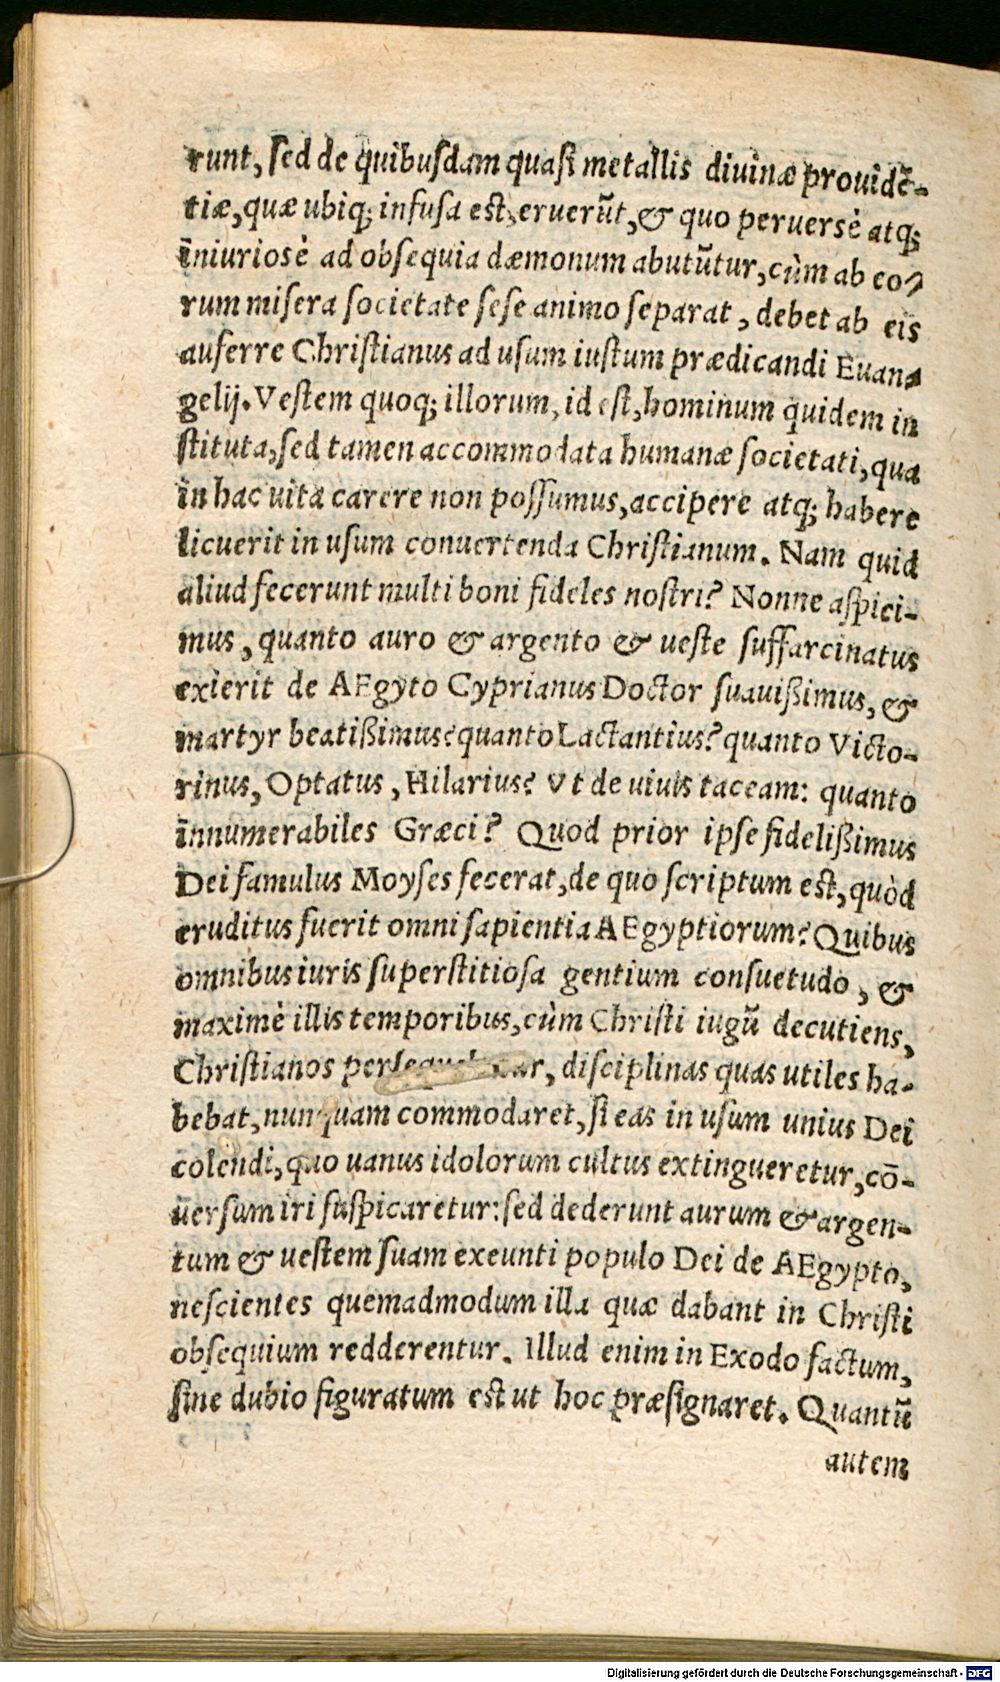 runt, sed de quibusdam quasi metallis diuinæ prouidē-
tiæ, quæ ubiq; infusa est, eruerūt, & quo peruersè atq;
iniuriosè ad obsequia dæmonum abutūtur, cùm ab eo-
rum misera societate sese animo separat, debet ab eis
auferre Christianus ad usum iustum prædicandi Euan-
gelij. Vestem quoq; illorum, id est, hominum quidem in
stituta, sed tamen accommodata humanæ societati, qua
in hac uita carere non possumus, accipere atq; habere
licuerit in usum conuertenda Christianum. Nam quid
aliud fecerunt multi boni fideles nostri? Nonne aspici-
mus, quanto auro & argento & ueste suffarcinatus
exierit de AEgyto Cyprianus Doctor suauißimus, &
martyr beatißimus? quanto Lactantius? quanto Victo-
rinus, Optatus, Hilarius? Vt de uiuis taceam: quanto
innumerabiles Græci? Quod prior ipse fidelißimus
Dei famulus Moyses fecerat, de quo scriptum est, quòd
eruditus fuerit omni sapientia AEgyptiorum? Quibus
omnibus iuris superstitiosa gentium consuetudo, &
maximè illis temporibus, cùm Christi iugū decutiens,
Christianos disciplinas quas utiles ha-
bebat, nunquam commodaret, si eas in usum unius Dei
colendi, quo uanus idolorum cultus extingueretur, cō-
uersum iri suspicaretur: sed dederunt aurum & argen-
tum & uestem suam exeunti populo Dei de AEgypto,
nescientes quemadmodum illa quæ dabant in Christi
obsequium redderentur. Illud enim in Exodo factum,
sine dubio figuratum est ut hoc præsignaret. Quantū
autem
Digitalisierung gefördert durch die Deutsche Forschungsgemeinschaft - DFG